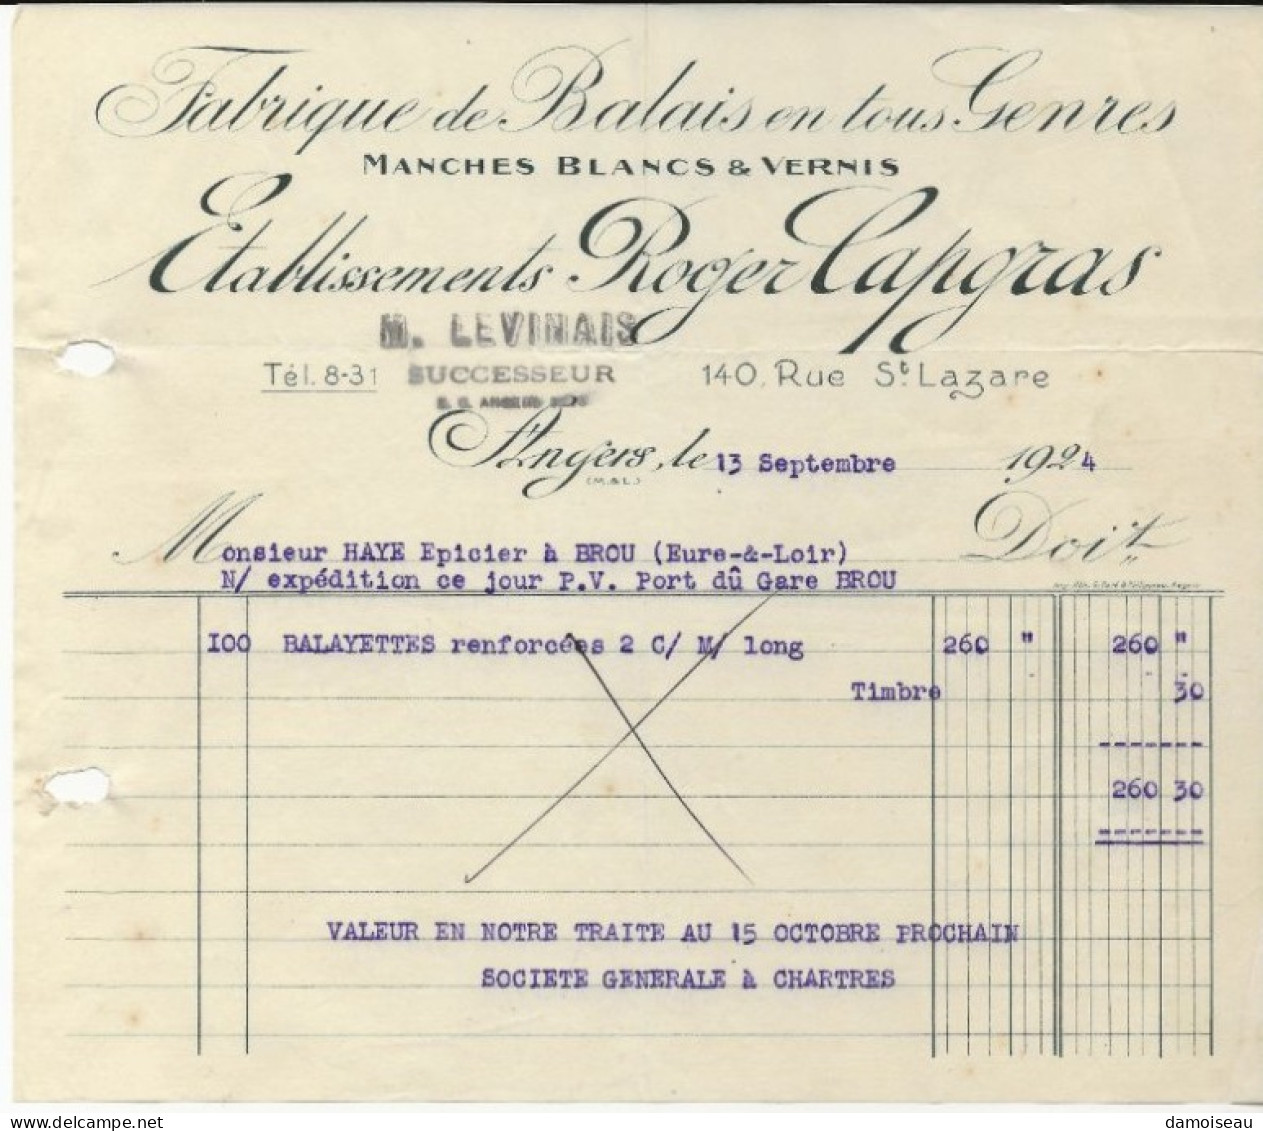 Fabrique de Balais en tous Genres
MANCHES BLANCS & VERNIS
Etablissements Roger Capgras
M. LEVINAIS
Tél. 8-31 SUCCESSEUR 140, Rue St Lazare
Angers, le 13 Septembre 1924
(M.&L.)
Monsieur HAYE Epicier à BROU (Eure-&-Loir) Doit
N/ expédition ce jour P.V. Port dû Gare BROU
100 BALAYETTES renforcées 2 C/ M/ long 260 " 260 "
Timbre 30
260 30
VALEUR EN NOTRE TRAITE AU 15 OCTOBRE PROCHAIN
SOCIETE GENERALE à CHARTRES
www.delcampe.net
damoiseau